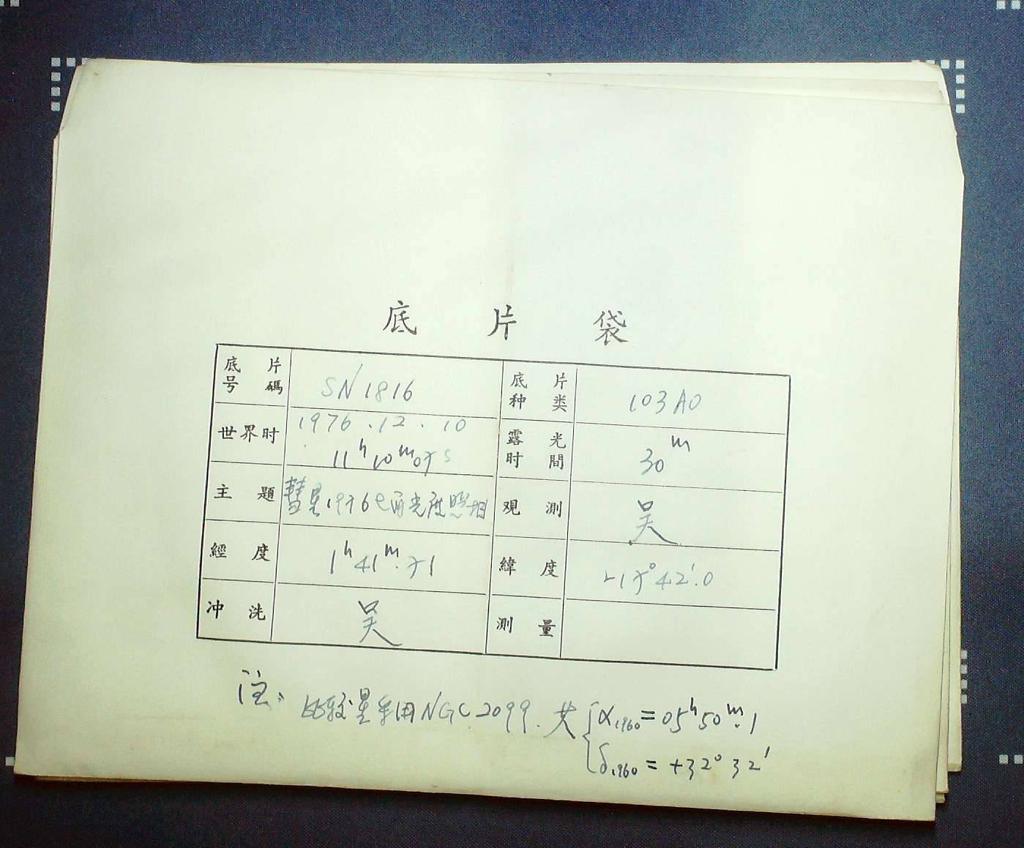 底片袋
底片号碼 SN1816 底片种类 103AO
世界时 1976.12.10 11ʰ10ᵐ07ˢ 露光时間 30ᵐ
主題 彗星1976e 光度照相 观測 吴
經度 1ʰ41ᵐ.71 緯度 -17°42′.0
冲洗 吴 測量
注、比较星采用NGC2099.其 α₁₉₆₀=05ʰ50ᵐ.1
δ₁₉₆₀=+32°32′